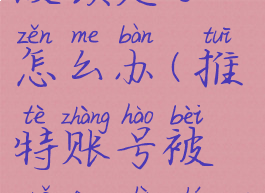 zěn me bàn tuī
怎么办(推
tè zhàng hào bèi
特账号被